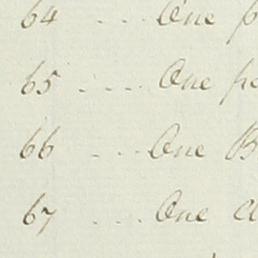 64 ... One
65 .... One
66 ... One B
67 ... One